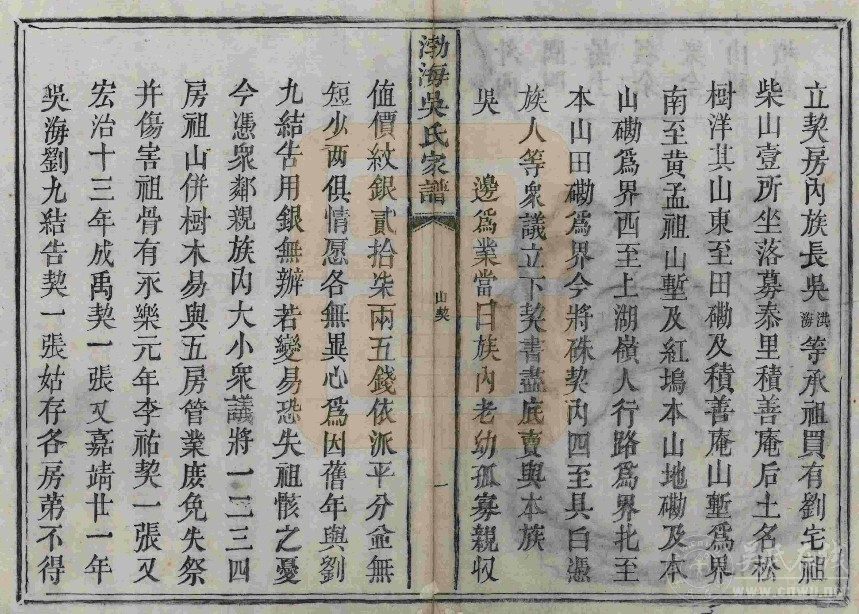 立契房內族長吳洪海等承祖買有劉宅祖
柴山壹所坐落募泰里積善庵后土名松
樹洋其山東至田磡及積善庵山塹為界
南至黄孟祖山塹及紅塢本山地磡及本
山磡為界西至上湖嶺人行路為界北至
本山田磡為界今將硃契內四至具白憑
族人等衆議立下契書盡底賣與本族
吳 邊為業當日族內老幼孤寡親収
渤海吳氏家譜
山契
一
值價紋銀貳拾柒兩五錢依派平分並無
短少两俱情愿各無異心為因舊年與劉
九結告用銀無辦若變易恐失祖骸之憂
今憑衆鄰親族內大小衆議將一二三四
房祖山併樹木易與五房管業庻免失祭
并傷害祖骨有永樂元年李祐契一張又
宏治十三年成禹契一張又嘉靖廿一年
吳海劉九結告契一張姑存各房弟不得
www.cnwu.net